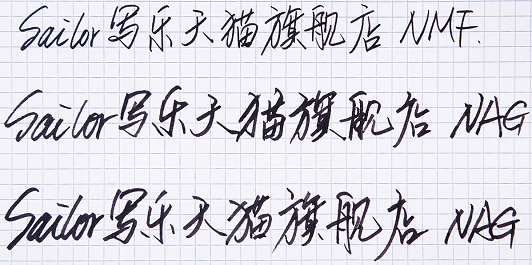 Sailor写乐天猫旗舰店 NMF.
Sailor写乐天猫旗舰店 NAG
Sailor写乐天猫旗舰店 NAG